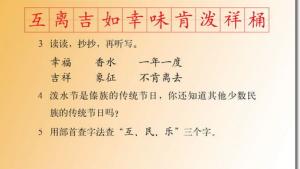 互离吉如幸味肯泼祥桶
3 读读，抄抄，再听写。
幸福 香水 一年一度
吉祥 象征 不肯离去
4 泼水节是傣族的传统节日，你还知道其他少数民
族的传统节日吗？
5 用部首查字法查“互、民、乐”三个字。